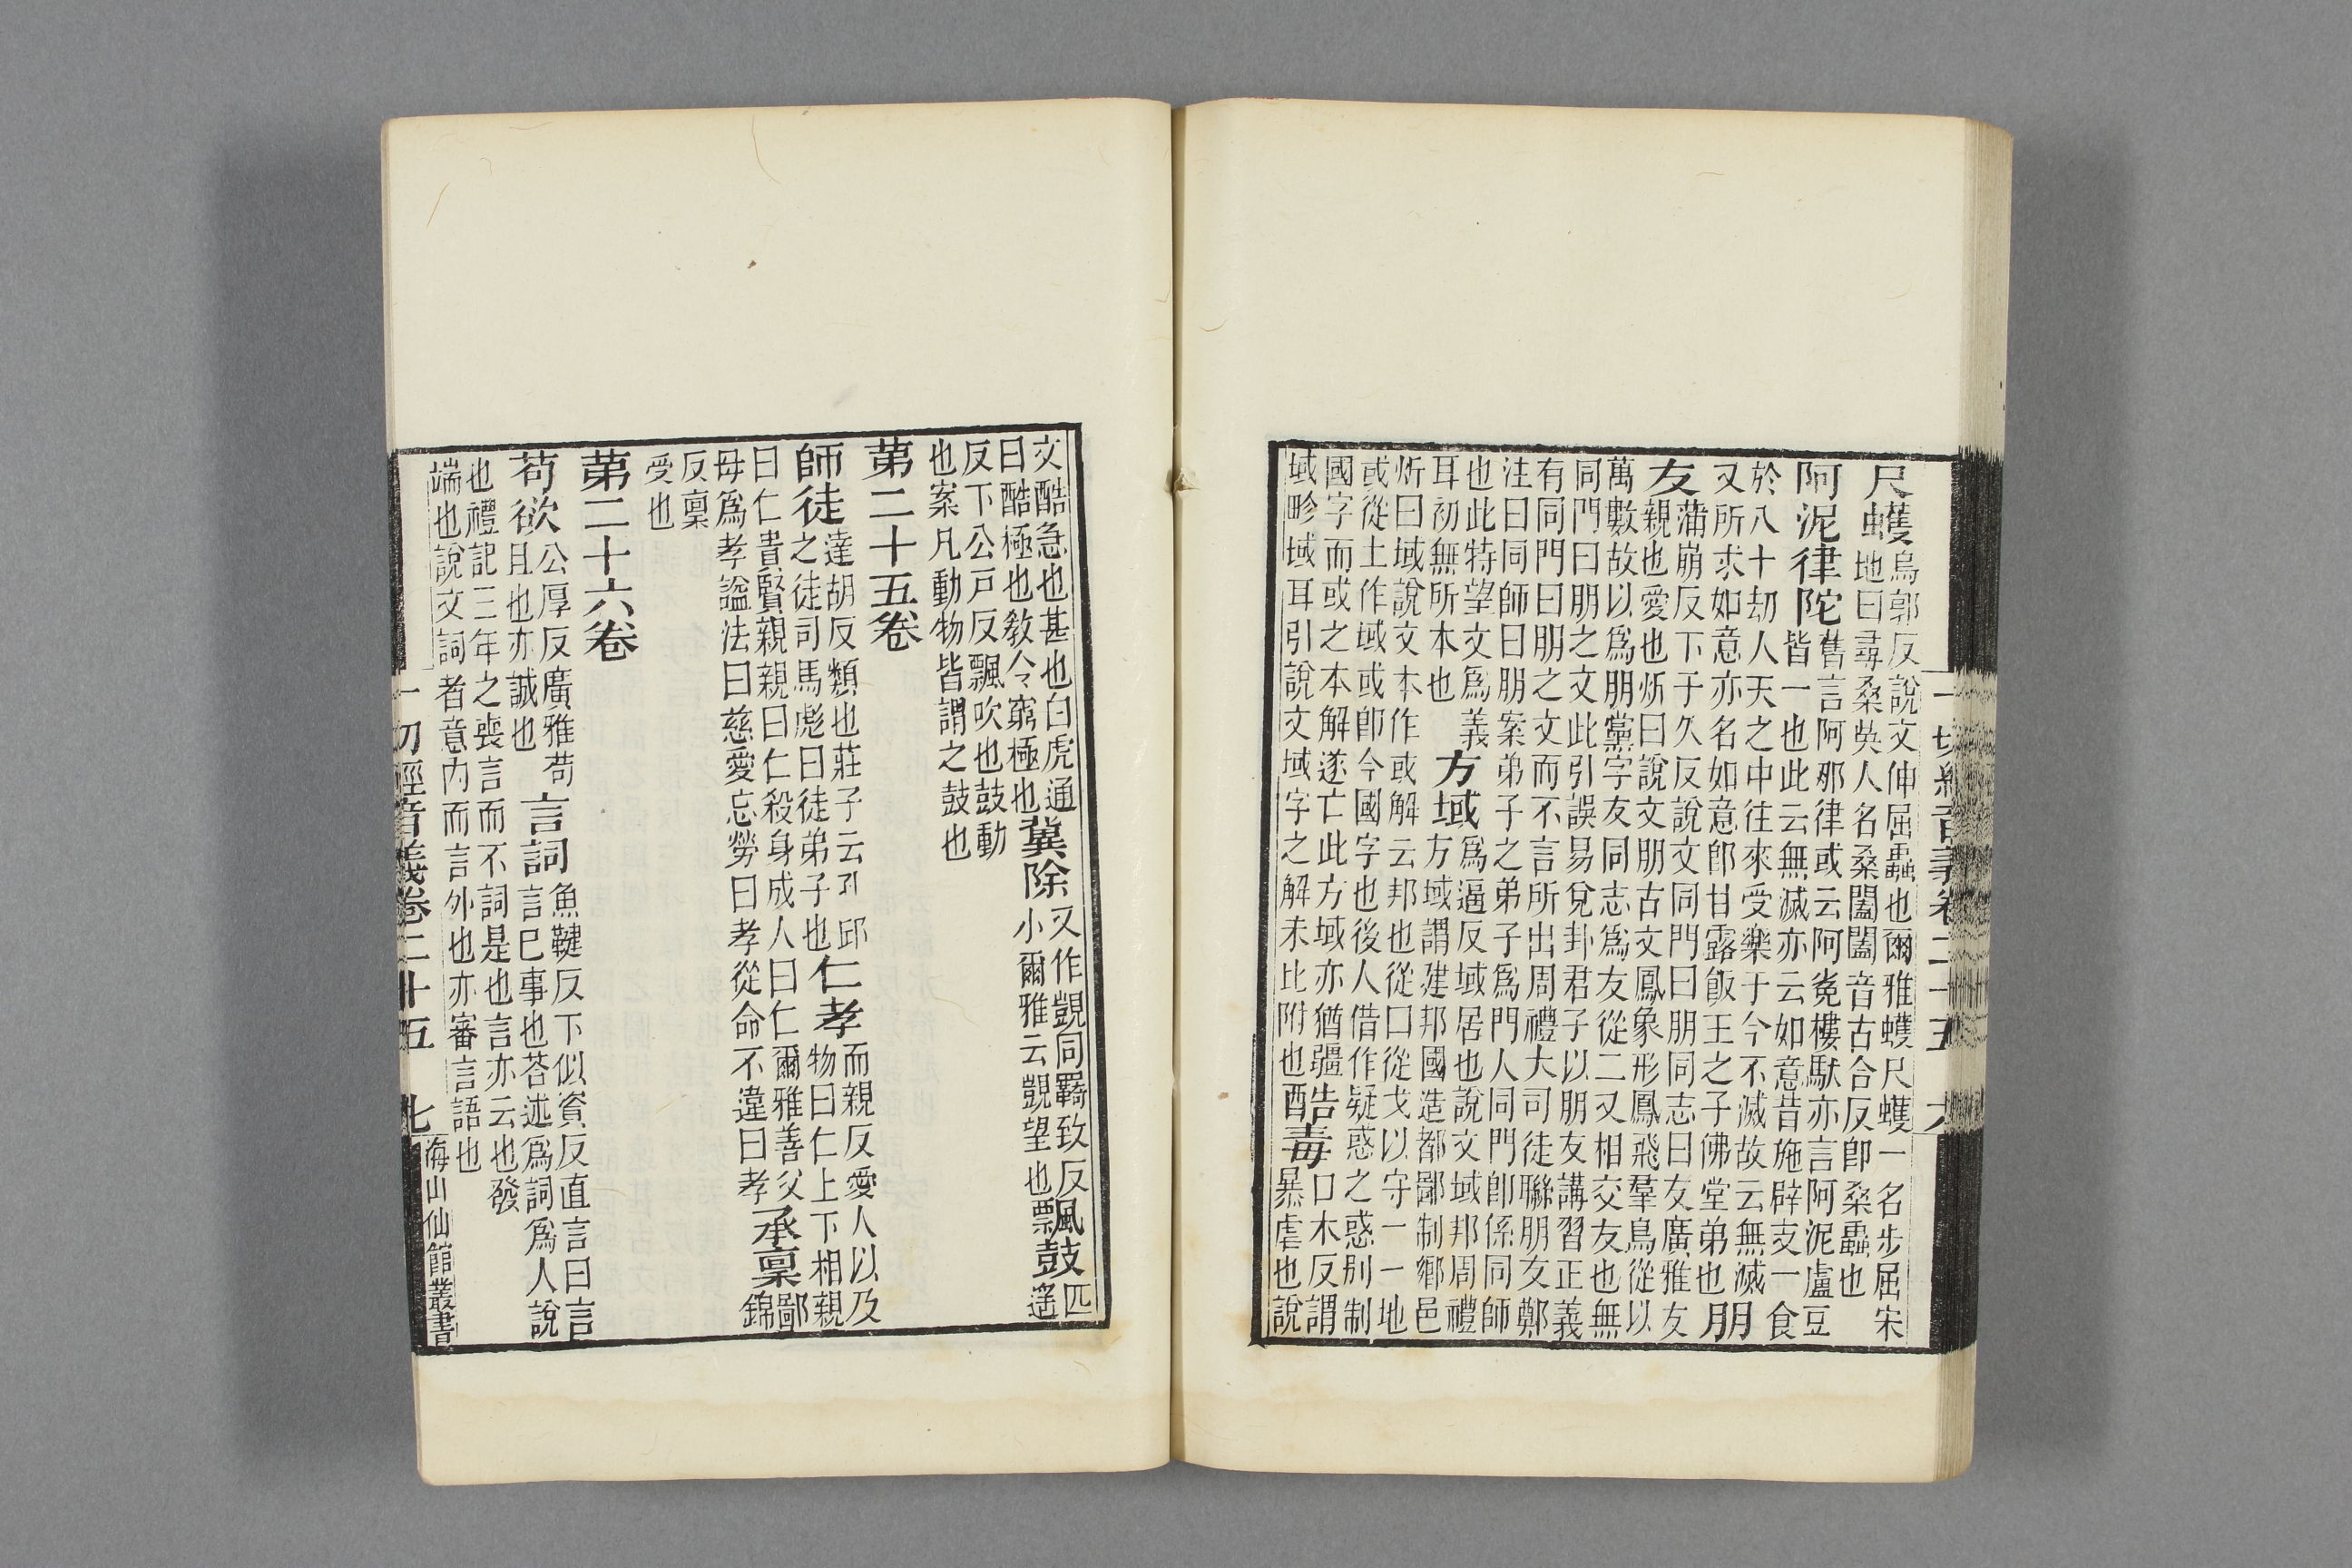 一切經音義卷二十五 六
尺蠖烏郭反說文伸屈蟲也爾雅蠖尺蠖一名步屈宋
地曰尋桑吳人名桑闔闔音古合反即桑蟲也
阿泥律陀舊言阿那律或云阿㝹樓馱亦言阿泥盧豆
皆一也此云無滅亦云如意昔施辟支一食
於八十劫人天之中往來受樂于今不滅故云無滅
又所求如意亦名如意即甘露飯王之子佛堂弟也朋
友蒲崩反下于久反說文同門曰朋同志曰友廣雅友
親也愛也炘曰說文朋古文鳳象形鳳飛羣鳥從以
萬數故以爲朋黨字友同志爲友從二又相交友也無
同門曰朋之文此引誤易兌卦君子以朋友講習正義
有同門曰朋之文而不言所出周禮大司徒聯朋友鄭
注曰同師曰朋案弟子之弟子爲門人同門即係同師
也此特望文爲義
耳初無所本也
方域爲逼反域居也說文域邦周禮
方域謂建邦國造都鄙制鄉邑
炘曰域說文本作或解云邦也從囗從戈以守一一地
或從土作域或即今國字也後人借作疑惑之惑別制
國字而或之本解遂亡此方域亦猶疆
域畛域耳引說文域字之解未比附也
酷毒口木反謂
暴虐也說
文酷急也甚也白虎通
曰酷極也教令窮極也
冀除又作覬同羇致反
小爾雅云覬望也
飄鼓匹
遥
反下公戸反飄吹也鼓動
也案凡動物皆謂之鼓也
第二十五卷
師徒達胡反類也莊子云孔邱
之徒司馬彪曰徒弟子也
仁孝而親反愛人以及
物曰仁上下相親
曰仁貴賢親親曰仁殺身成人曰仁爾雅善父
母爲孝謚法曰慈愛忘勞曰孝從命不違曰孝
承稟鄙
錦
反稟
受也
第二十六卷
苟欲公厚反廣雅苟
且也亦誠也
言詞魚鞬反下似資反直言曰言
言已事也荅述爲詞爲人說
也禮記三年之喪言而不詞是也言亦云也發
端也說文詞者意内而言外也亦審言語也
一切經音義卷二十五 七 海山仙館叢書